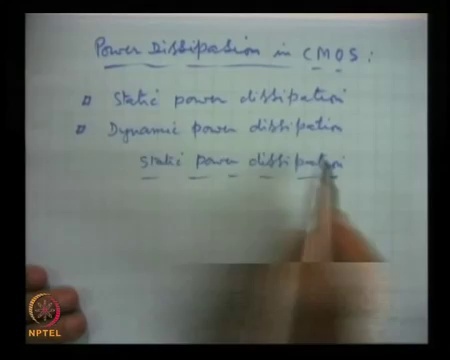 Power Dissipation in CMOS:
Static power dissipation
Dynamic power dissipation
static power dissipation
NPTEL